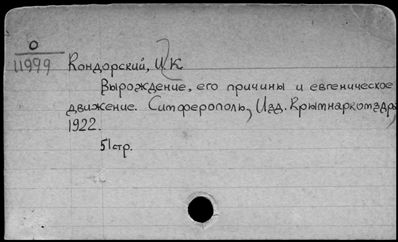 О
11999
Кондорский, И.К
Вырождение, его причины и евгеническое
движение. Симферополь, Изд. Крымнаркомздра
1922.
51стр.